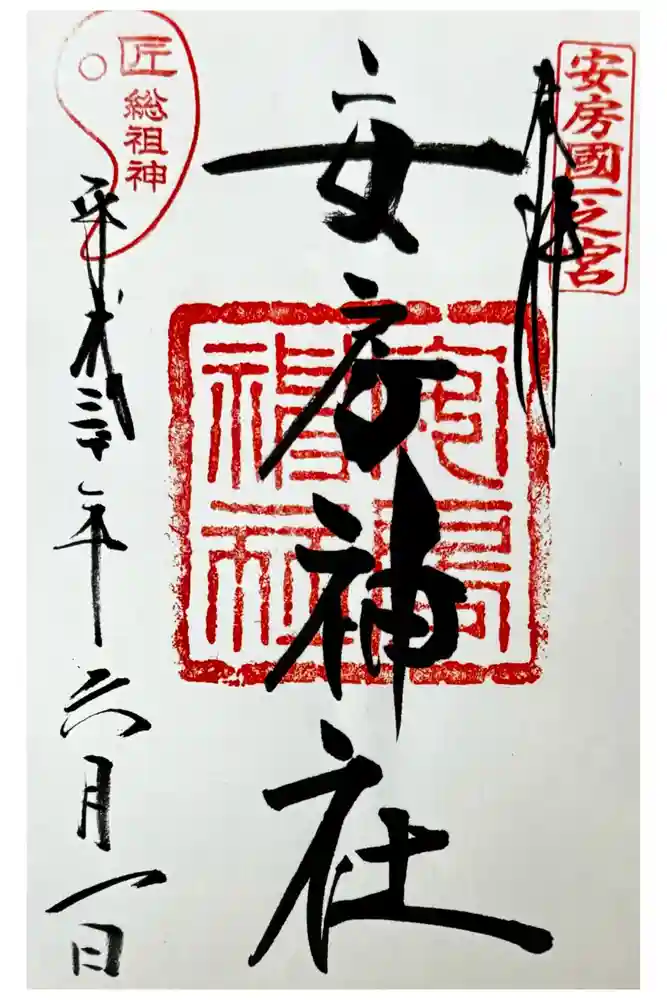 安房國一之宮
奉拝
安房神社
安房神社
匠総祖神
平成三十年六月一日